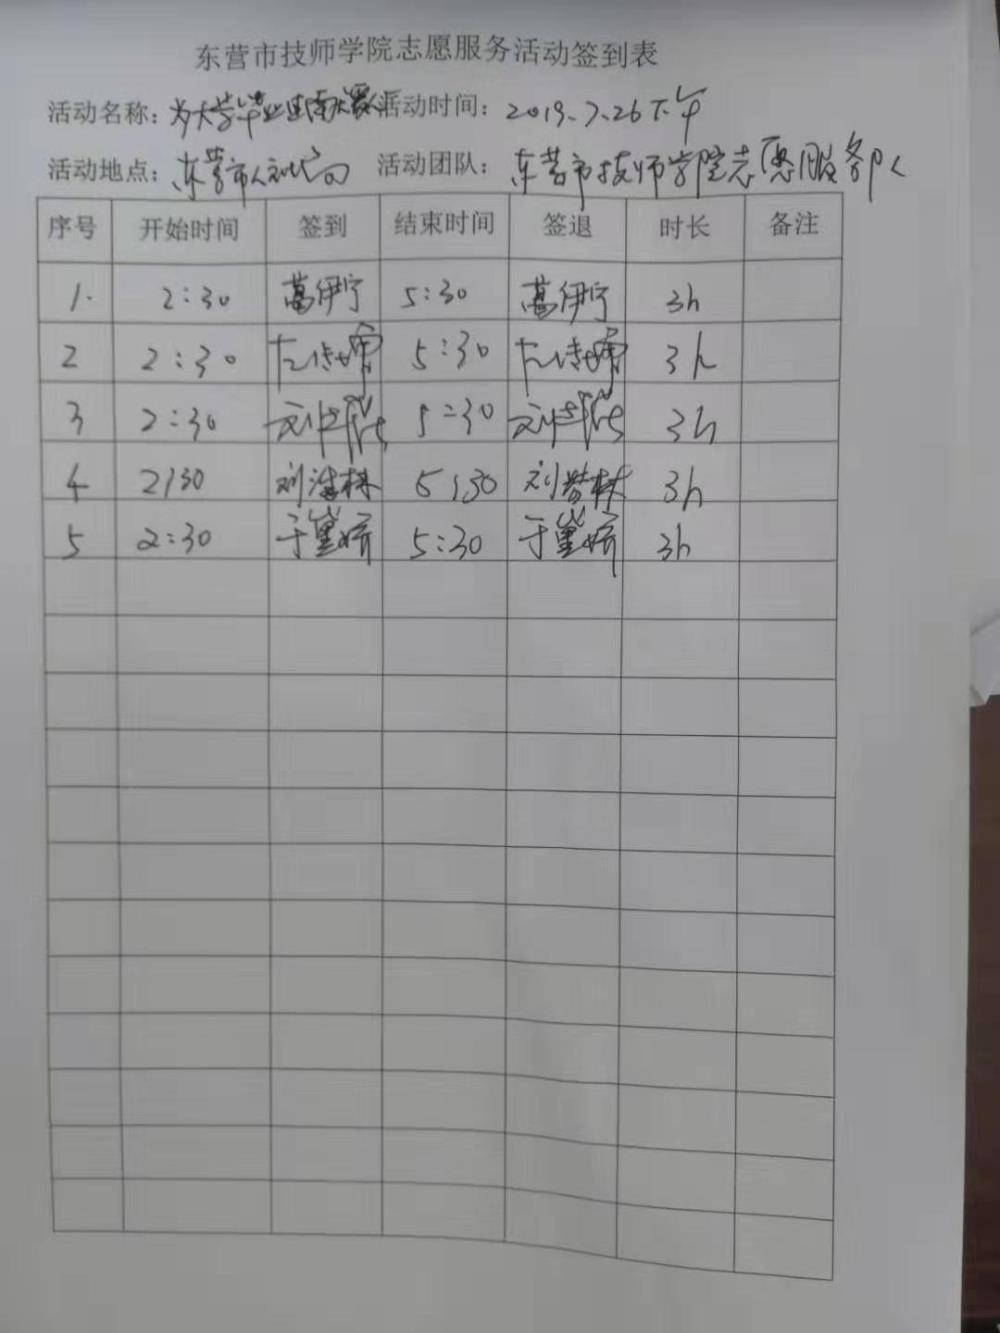 东营市技师学院志愿服务活动签到表
活动名称: 为大学毕业生 活动时间: 2019.7.26下午
活动地点: 东营市人社局 活动团队: 东营市技师学院志愿服务队
序号 开始时间 签到 结束时间 签退 时长 备注
1. 2:30 葛伊宁 5:30 葛伊宁 3h
2 2:30 5:30 3h
3 2:30 5:30 3h
4 2:30 刘 5:30 刘 3h
5 2:30 于黛娇 5:30 于黛娇 3h